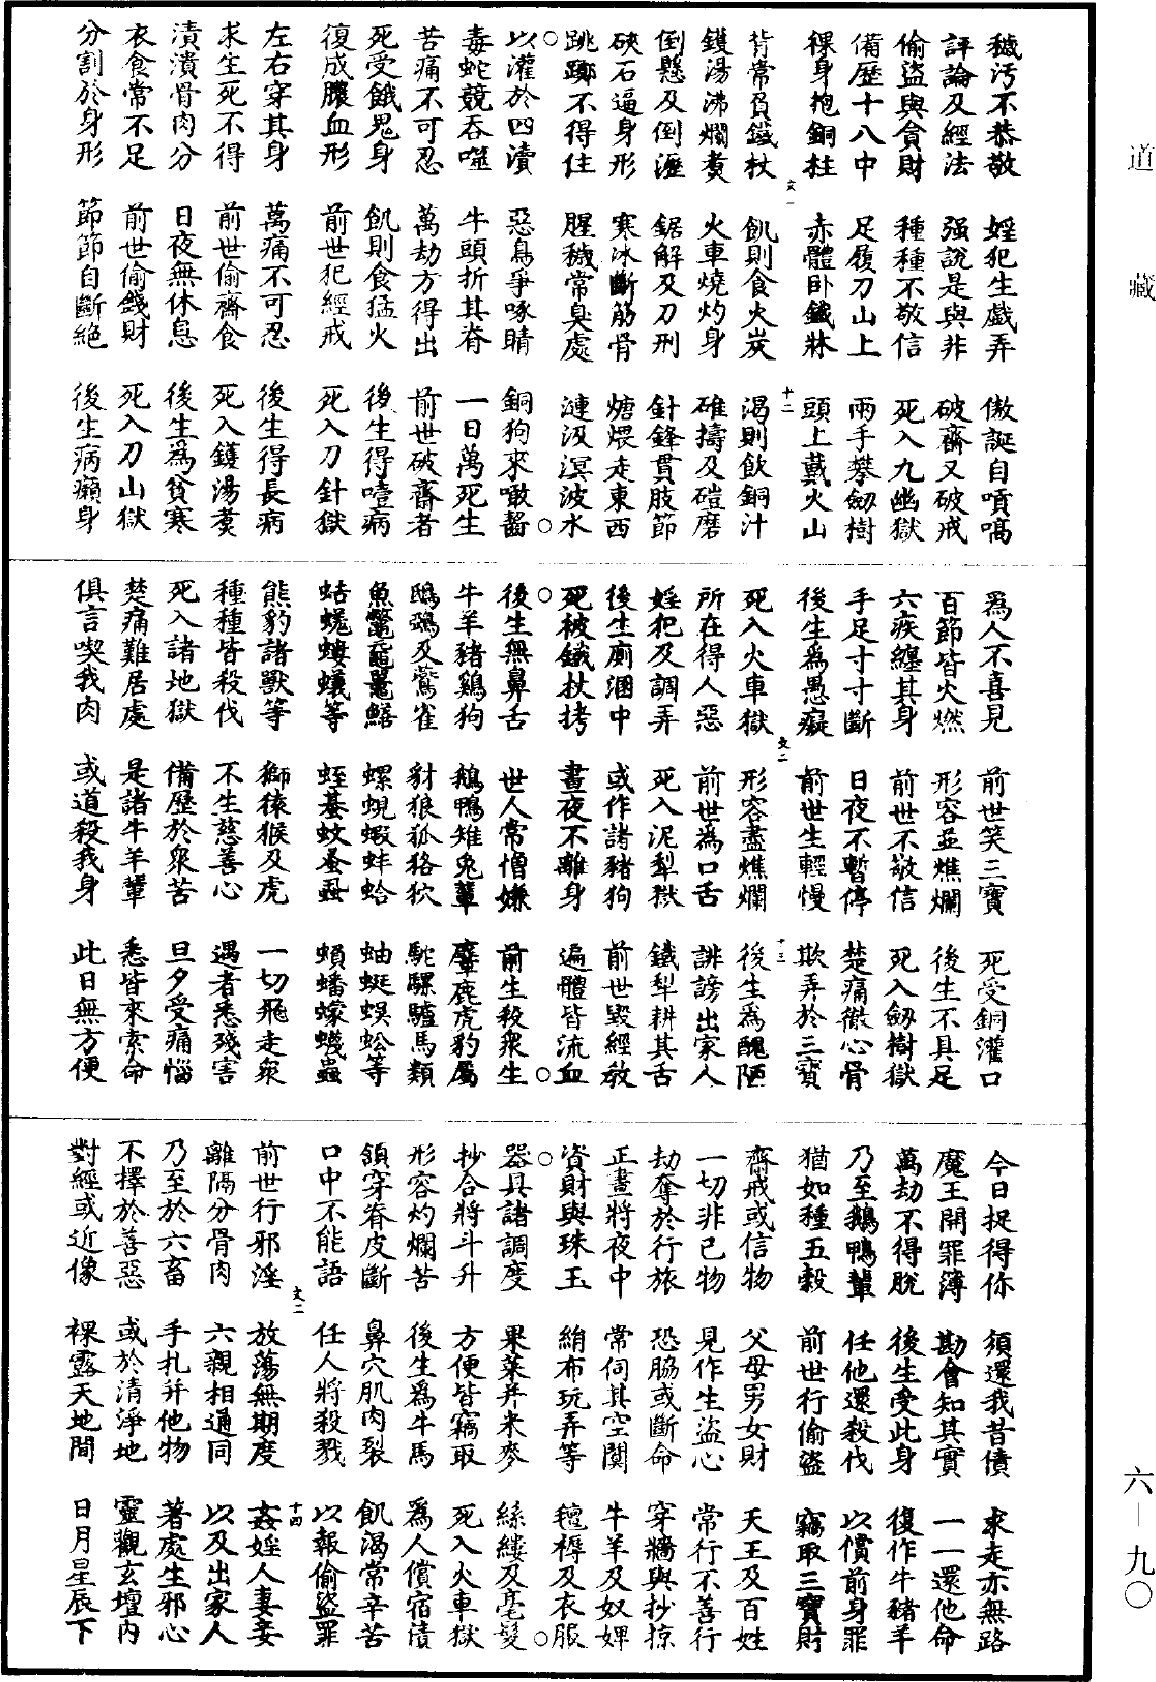 穢污不恭敬　婬犯生戲弄　傲誕自嗊喎
評論及經法　强說是與非　破齋又破戒
偷盜與貪財　種種不敬信　死入九幽獄
備歷十八中　足履刀山上　兩手攀劒樹
裸身抱銅柱　赤體卧鐵牀　頭上戴火山
文一　十二
背常負鐵杖　飢則食火炭　渴則飲銅汁
鑊湯沸爛煑　火車燒灼身　碓擣及磑磨
倒懸及倒瀝　鋸解及刀刑　針鋒貫肢節
硤石逼身形　寒冰斷筋骨　煻煨走東西
跳躑不得住　腥穢常臭處　漣汲溟波水
以灌於四瀆　惡鳥爭啄睛　銅狗來噉齧
毒蛇競吞噬　牛頭折其脊　一日萬死生
苦痛不可忍　萬劫方得出　前世破齋者
死受餓鬼身　飢則食猛火　後生得噎病
復成膿血形　前世犯經戒　死入刀針獄
左右穿其身　萬痛不可忍　後生得長病
求生死不得　前世偷齋食　死入鑊湯煑
漬潰骨肉分　日夜無休息　後生爲貧寒
衣食常不足　前世偷錢財　死入刀山獄
分割於身形　節節自斷絕　後生病癩身
爲人不喜見　前世笑三寶　死受銅灌口
百節皆火燃　形容並燋爛　後生不具足
六疾纏其身　前世不敬信　死入劒樹獄
手足寸寸斷　日夜不暫停　楚痛徹心骨
後生爲愚癡　前世生輕慢　欺弄於三寶
文二　十三
死入火車獄　形容盡燋爛　後生爲醜陋
所在得人惡　前世為口舌　誹謗出家人
婬犯及調弄　死入泥犁獄　鐵犁耕其舌
後生廁溷中　或作諸豬狗　前世毀經教
死被鐵杖拷　晝夜不離身　遍體皆流血
後生無鼻舌　世人常憎嫌　前生殺衆生
牛羊豬鷄狗　鵝鴨雉兎輩　麞鹿虎豹屬
鴟鴞及鶯雀　豺狼狐狢犾　駝騾驢馬類
魚鼈黿鼉鱔　螺蜆蝦蚌蛤　蚰蜒蜈蚣等
蛣蜣螻蟻等　蛭蟇蚊蚤虱　蝜蟠蠓蠛蟲
熊豹諸獸等　獅猿猴及虎　一切飛走衆
種種皆殺伐　不生慈善心　遇者悉殘害
死入諸地獄　備歷於衆苦　旦夕受痛惱
楚痛難居處　是諸牛羊輩　悉皆來索命
俱言喫我肉　或道殺我身　此日無方便
今日捉得你　須還我昔債　求走亦無路
魔王開罪簿　勘會知其實　一一還他命
萬劫不得脫　後生受此身　復作牛豬羊
乃至鵝鴨輩　任他還殺伐　以償前身罪
猶如種五穀　前世行偷盜　竊取三寶財
齋戒或信物　父母男女財　天王及百姓
一切非已物　見作生盜心　常行不善行
劫奪於行旅　恐脇或斷命　穿牆與抄掠
正晝將夜中　常伺其空闃　牛羊及奴婢
資財與珠玉　綃布玩弄等　氊褥及衣服
器具諸調度　果菜并米麥　絲縷及毫髮
抄合將斗升　方便皆竊取　死入火車獄
形容灼爛苦　後生爲牛馬　爲人償宿債
領穿脊皮斷　鼻穴肌肉裂　飢渴常辛苦
口中不能語　任人將殺戮　以報偷盜罪
文二　十四
前世行邪淫　放蕩無期度　姦婬人妻妾
離隔分骨肉　六親相通同　以及出家人
乃至於六畜　手扎并他物　著處生邪心
不擇於善惡　或於清淨地　靈觀玄壇內
對經或近像　裸露天地間　日月星辰下
道藏
六—九〇